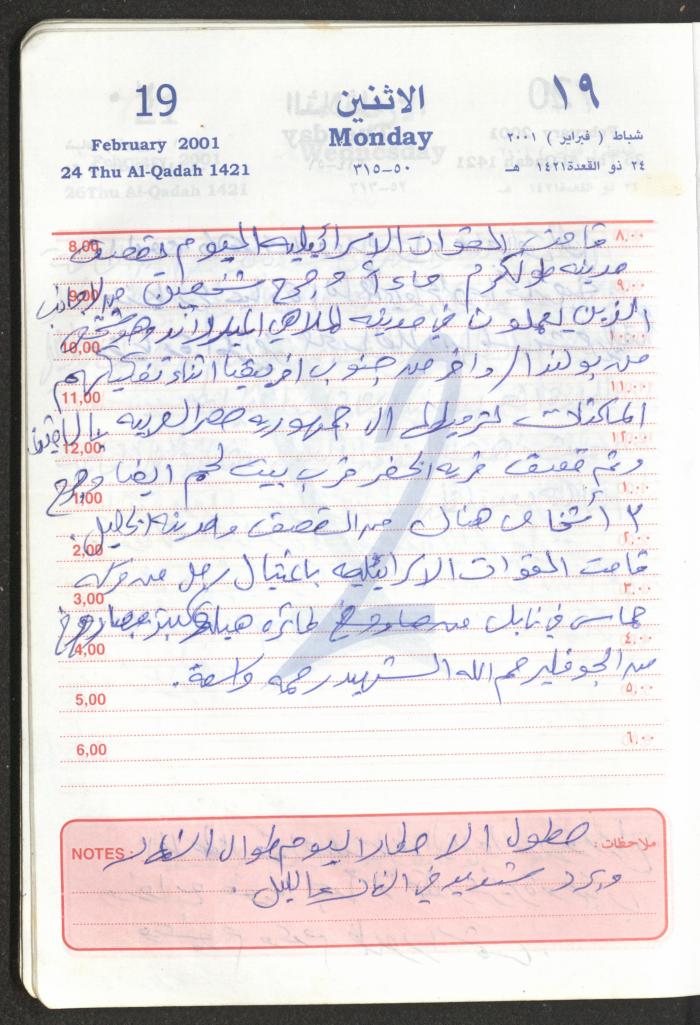 19
February 2001
24 Thu Al-Qadah 1421
الاثنين
Monday
٣١٥-٥٠
١٩
شباط ( فبراير ) ٢٠٠١
٢٤ ذو القعدة ١٤٢١ هـ
8,00 قامت القوات الإسرائيلية اليوم بقصف ٨,٠٠
9,00 مدينة طولكرم مساءً وجرح شخصين من الاجانب ٩,٠٠
الذين يعملون في مدينة الملاهي الميلو
10,00 من بولندا / واخر من جنوب افريقيا اثناء تفكيكهم ١٠,٠٠
11,00 الماكنات لترحيلها الى جمهورية مصر العربية ١١,٠٠
12,00 وتم قصف قرية الخضر قرب بيت لحم ايضا وجرح ١٢,٠٠
1,00 ٣ أشخاص هناك من القصف ومدينة الخليل. ١,٠٠
2,00 قامت القوات الإسرائيلية باغتيال رجل من حركة ٢,٠٠
3,00 حماس في نابلس من صاروخ طائرة هيلوكبتر بصاروخ ٣,٠٠
4,00 من الجو فليرحم الله الشهيد رحمة واسعة. ٤,٠٠
5,00 ٥,٠٠
6,00 ٦,٠٠
NOTES: هطول الامطار اليوم طوال النهار ملاحظات:
وبرد شديد في النهار والليل.